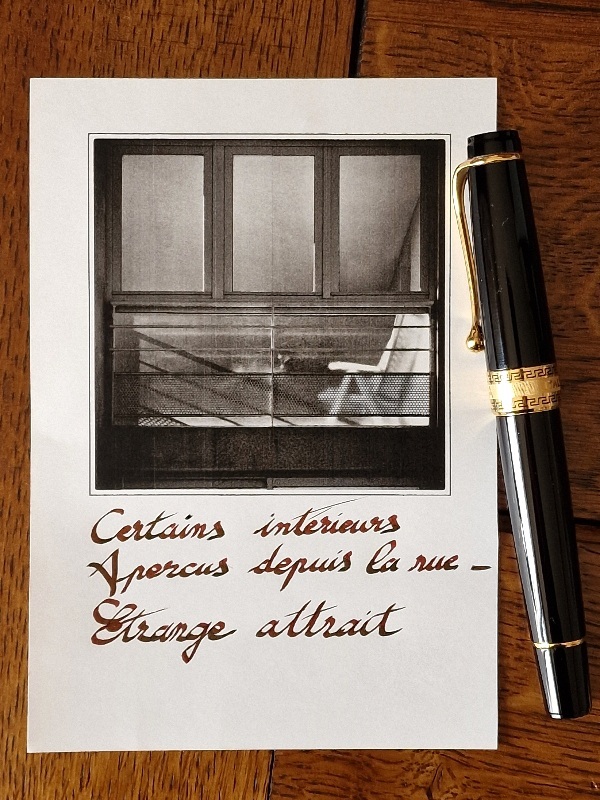 Certains intérieurs
Apercus depuis la rue -
Étrange attrait